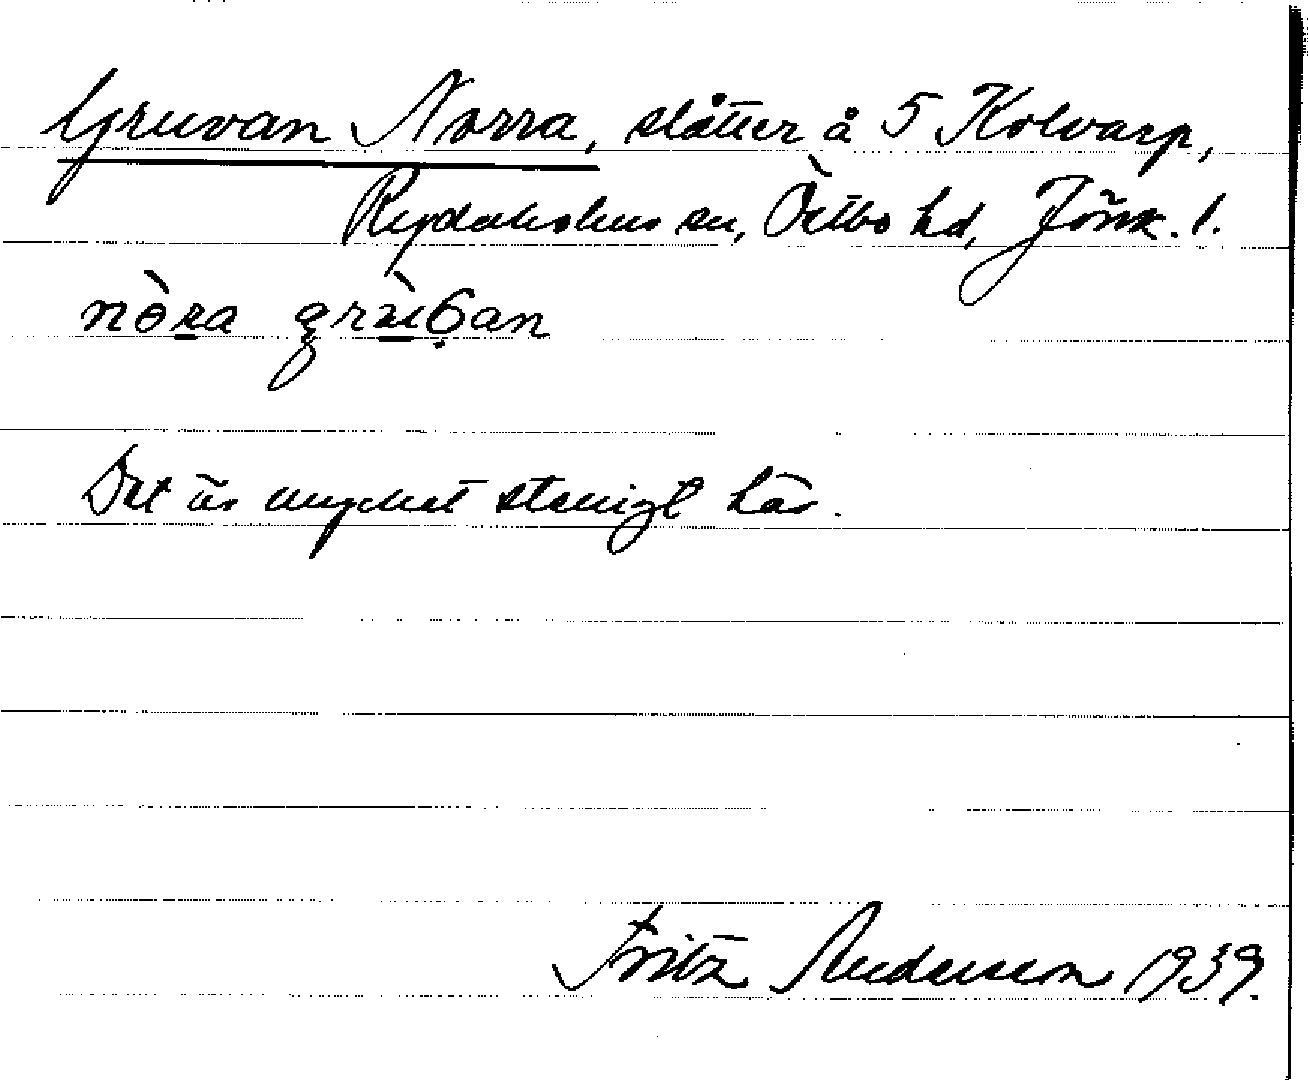 Gruvan Norra, slåtter å 5 Kolvarp,
Rydaholms sn, Östbo hd, Jönk. l.
nòra
Det är mycket stenigt här.
Fritz Anderson 1939.